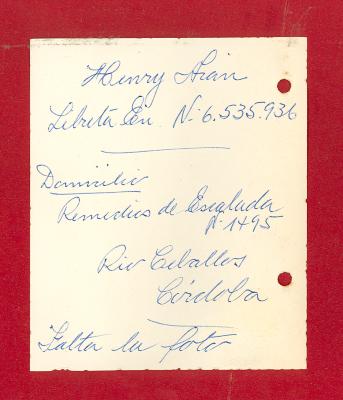 Henry Arian
Libreta En. Nº 6.535.936
Domicilio
Remedios de Escalada
Nº 1495
Rio Ceballos
Córdoba
Falta la foto